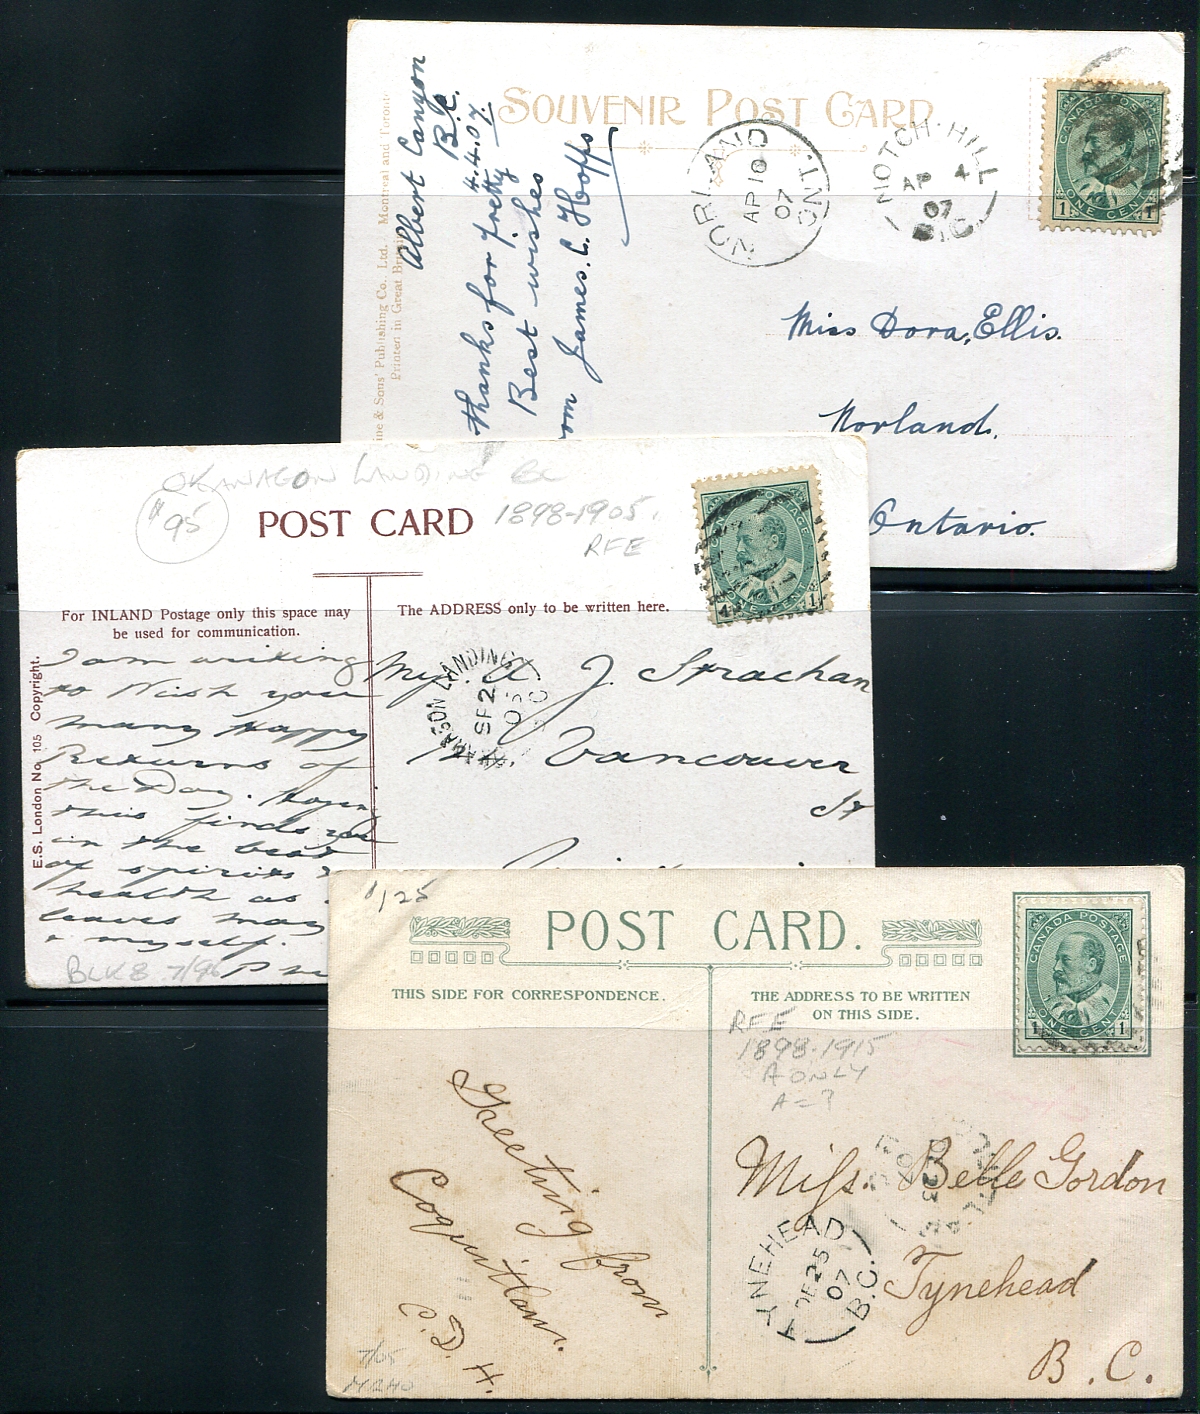 SOUVENIR POST CARD
ine & Sons' Publishing Co., Ltd. Montreal and Toronto
Printed in Great Bri
Albert Canyon
B.C.
4.4.07.
Thanks for pretty
Best wishes
rom James. C. Hopps
NORLAND
AP 10
07
ONT.
NOTCH-HILL
AP 4
07
B.C.
CANADA POSTAGE
1 ONE CENT 1
Miss Dora, Ellis.
Norland.
Ontario.
OKANAGON LANDING BC
$95
POST CARD
1898-1905.
RFE
POSTAGE
ONE CENT 1
For INLAND Postage only this space may
be used for communication.
The ADDRESS only to be written here.
E.S. London No. 105 Copyright.
I am writing
to Wish you
many Happy
Returns of
the Day. Hoping
this finds you
in the best
of spirits &
health as
leaves may
& myself.
BLK8 7/96
NAGON LANDING
SP 2
05
A J. Strachan
Vancouver
St
$125
POST CARD.
CANADA POSTAGE
1 ONE CENT 1
THIS SIDE FOR CORRESPONDENCE.
THE ADDRESS TO BE WRITTEN
ON THIS SIDE.
RFE
1898-1915
A ONLY
A = ?
Greeting from
Coquitlam.
B.C.
H.
Miss. Belle Gordon
Tynehead
B.C.
TYNEHEAD
DE 25
07
B.C.
7/05